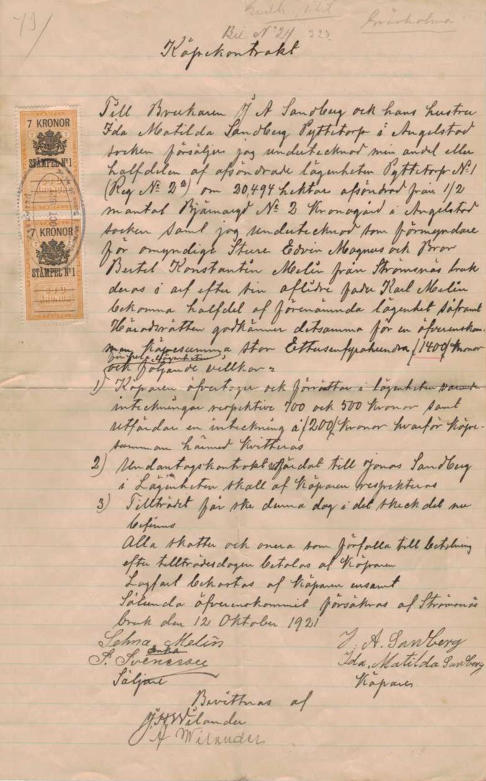 79/
Bil. N:o 24 323
Köpekontrakt
7 KRONOR
STÄMPEL Nº1
7 KRONOR
STÄMPEL Nº1
Till Brukaren J A Sandberg och hans hustru
Ida Matilda Sandberg Pyttetorp i Angelstad
socken försäljer jag undertecknad min andel eller
halfdelen af afsöndrade lägenheten Pyttetorp Nº 1
(Reg Nº 2⁹) om 20,494 hektar afsöndrad från 1/2
mantal Bjärnaryd Nº 2 Kronogård i Angelstad
socken samt jag undertecknad som förmyndare
för omyndige Sture Edvin Magnus och Bror
Bertel Konstantin Melin från Strömsnäs bruk
deras i arf efter sin aflidne fader Karl Melin
bekomna halfdel af förenämda lägenhet såframt
Häradsrätten godkänner detsamma för en öfverenskom-
men köpesumma stor Ettusenfyrahundra /1400/ kronor
och följande villkor =
1) Köparen öfvertager och förräntar i lägenheten
inteckningar respektive 700 och 500 Kronor samt
utfärdar en inteckning à /200/ Kronor hvarför Köpe-
summan härmed kvitteras
2) Undantagskontraktet utfärdat till Jonas Sandberg
i Lägenheten skall af Köparen respekteras
3) Tillträdet får ske denna dag i det skick det nu
befinns
Alla skatter och onera som förfalla till betalning
efter tillträdesdagen betalas af Köparen
Lagfart bekostas af Köparen ensamt
Sålunda öfverenskommit försäkras af Strömsnäs
bruk den 12 Oktober 1921
Selma Melin
enka
P. Svensson
Säljare
J. A. Sandberg
Ida, Matilda Sandberg
Köpare
Bevittnas af
J. A. Wilander
A Wilander